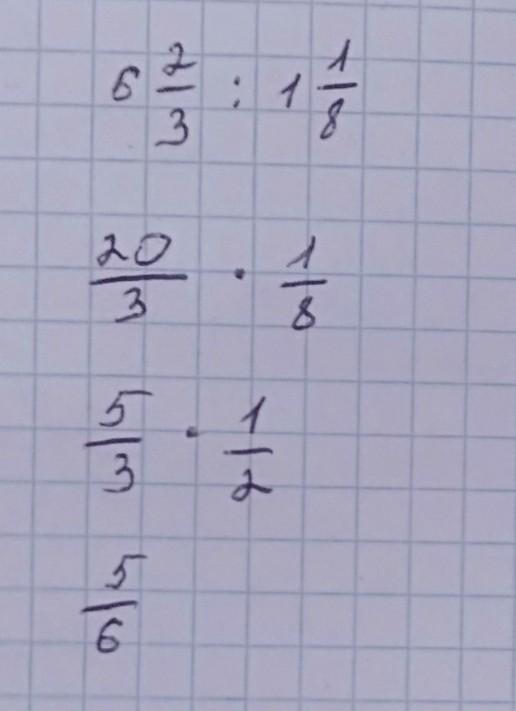 6 2/3 : 1 1/8
20/3 · 1/8
5/3 · 1/2
5/6